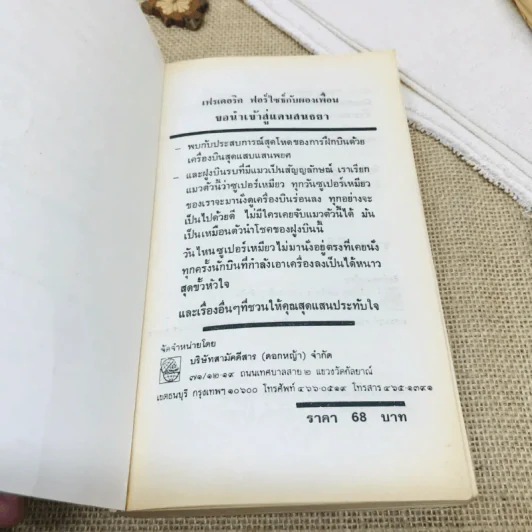 เฟรเดอริค ฟอร์ไซธ์กับผองเพื่อน
ขอนำเข้าสู่แดนสนธยา
– พบกับประสบการณ์สุดโหดของการฝึกบินด้วย
เครื่องบินสุดแสบแสนพยศ
– และฝูงบินรบที่มีแมวเป็นสัญญลักษณ์ เราเรียก
แมวตัวนี้ว่าซูเปอร์เหมียว ทุกวันซูเปอร์เหมียว
ของเราจะมานั่งดูเครื่องบินร่อนลง ทุกอย่างจะ
เป็นไปด้วยดี ไม่มีใครเคยจับแมวตัวนี้ได้ มัน
เป็นเหมือนตัวนำโชคของฝูงบินนี้
วันไหนซูเปอร์เหมียวไม่มานั่งอยู่ตรงที่เคยนั่ง
ทุกครั้งนักบินที่กำลังเอาเครื่องลงเป็นได้หนาว
สุดขั้วหัวใจ
และเรื่องอื่นๆที่ชวนให้คุณสุดแสนประทับใจ
จัดจำหน่ายโดย
บริษัทสามัคคีสาร (ดอกหญ้า) จำกัด
๗๑/๑๒-๑๙ ถนนเทศบาลสาย ๒ แขวงวัดกัลยาณ์
เขตธนบุรี กรุงเทพฯ ๑๐๖๐๐ โทรศัพท์ ๔๖๖-๐๕๑๙ โทรสาร ๔๖๕-๑๓๙๑
ราคา 68 บาท